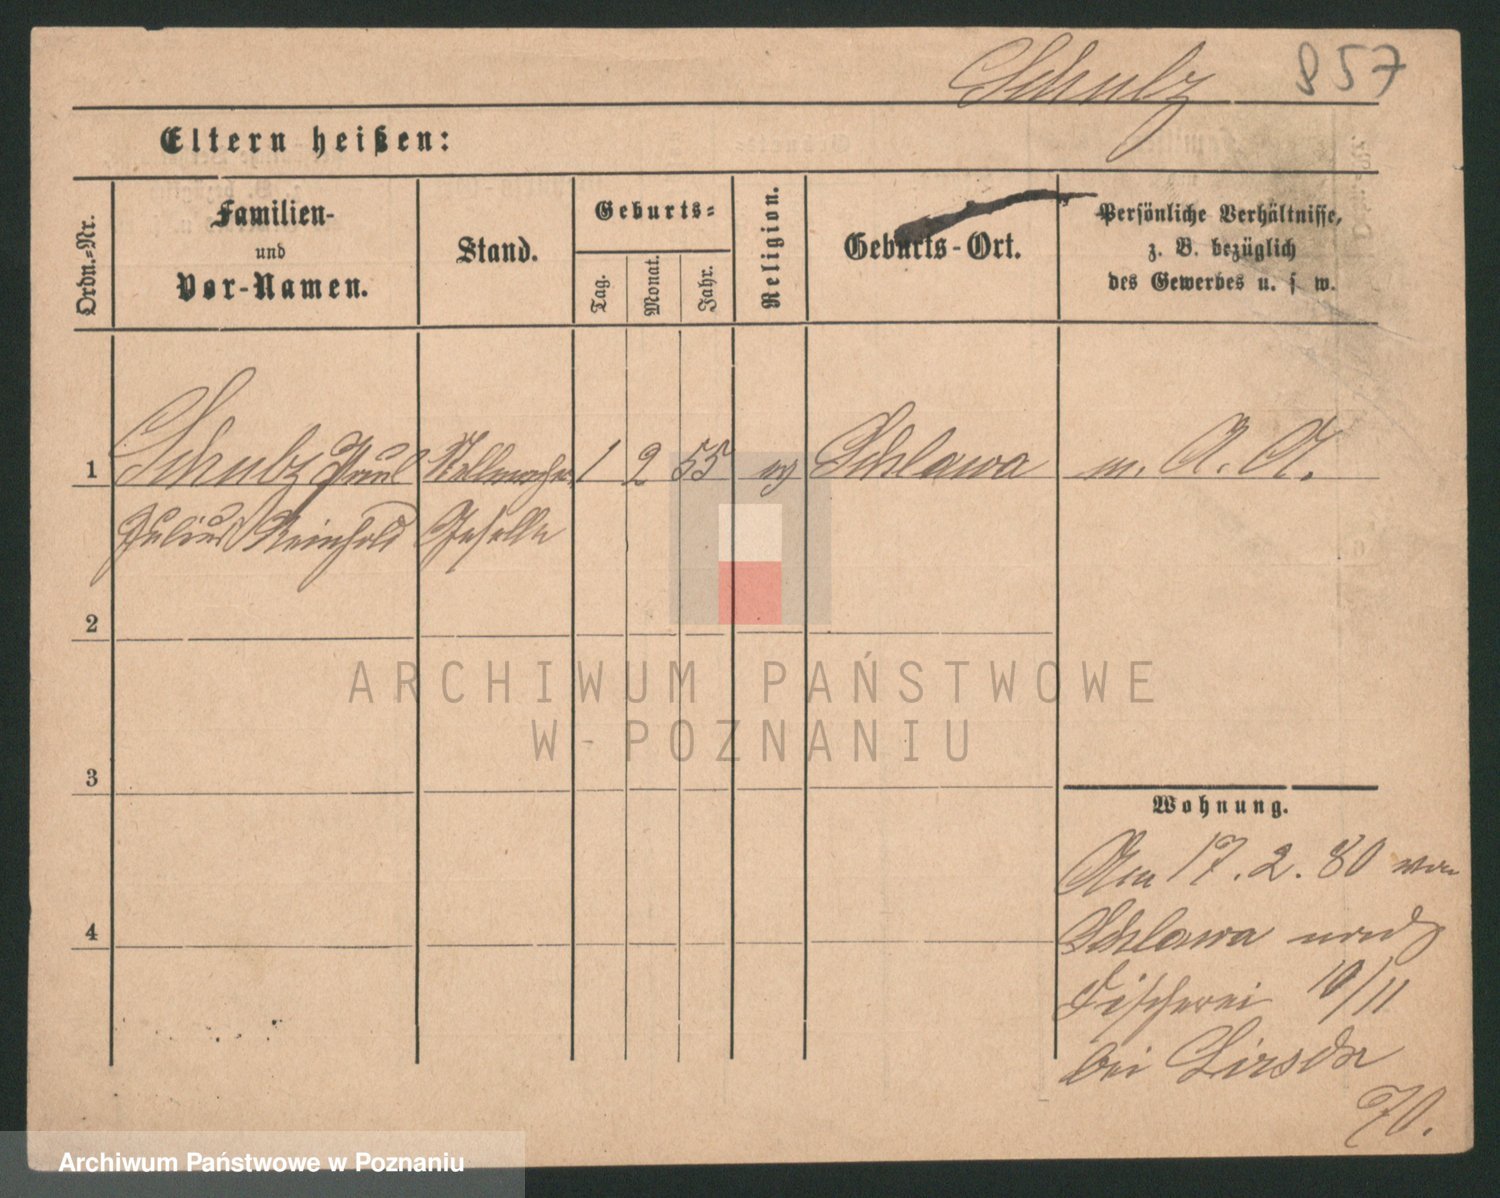 Schulz 857
Eltern heißen:
Ordn.-Nr.
Familien-
und
Vor-Namen.
Stand.
Geburts-
Tag.
Monat.
Jahr.
Religion.
Geburts-Ort.
Persönliche Verhältnisse,
z. B. bezüglich
des Gewerbes u. s w.
1 Schulz Paul Stellmacher 1 2 55 ev Schlawa m. A. A.
Julius Reinhold Geselle
2
3
4
Wohnung.
Am 17. 2. 80 von
Schlawa nach
Fischerei 10/11
bei
70.
ARCHIWUM PAŃSTWOWE
W POZNANIU
Archiwum Państwowe w Poznaniu